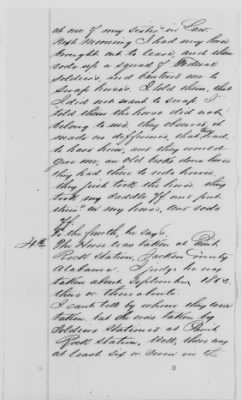 at one of my Sister in Law
Next Morning I had my horse
brought out to leave, and there
rode up a squad of Federal
Soldiers, and bantered me to
Swap horses. I told them, that
I did not want to swap I
told them the horse did not
belong to me they observed, it
made no difference, that they had
to have him, and they would
give me, an old broke down horse
they had there to ride home
they just took the horse they
took my saddle off and put
theirs on my horse, and rode
off
To the fourth, he says
4th The Horse was taken at Paint
Rock Station, Jackson County
Alabama. I judge he was
taken about September 1863
there or there abouts.
I can't tell by whom they were
taken, but he was taken by
Soldiers Stationed at Paint
Rock Station, Well, there was
at least six or seven in the